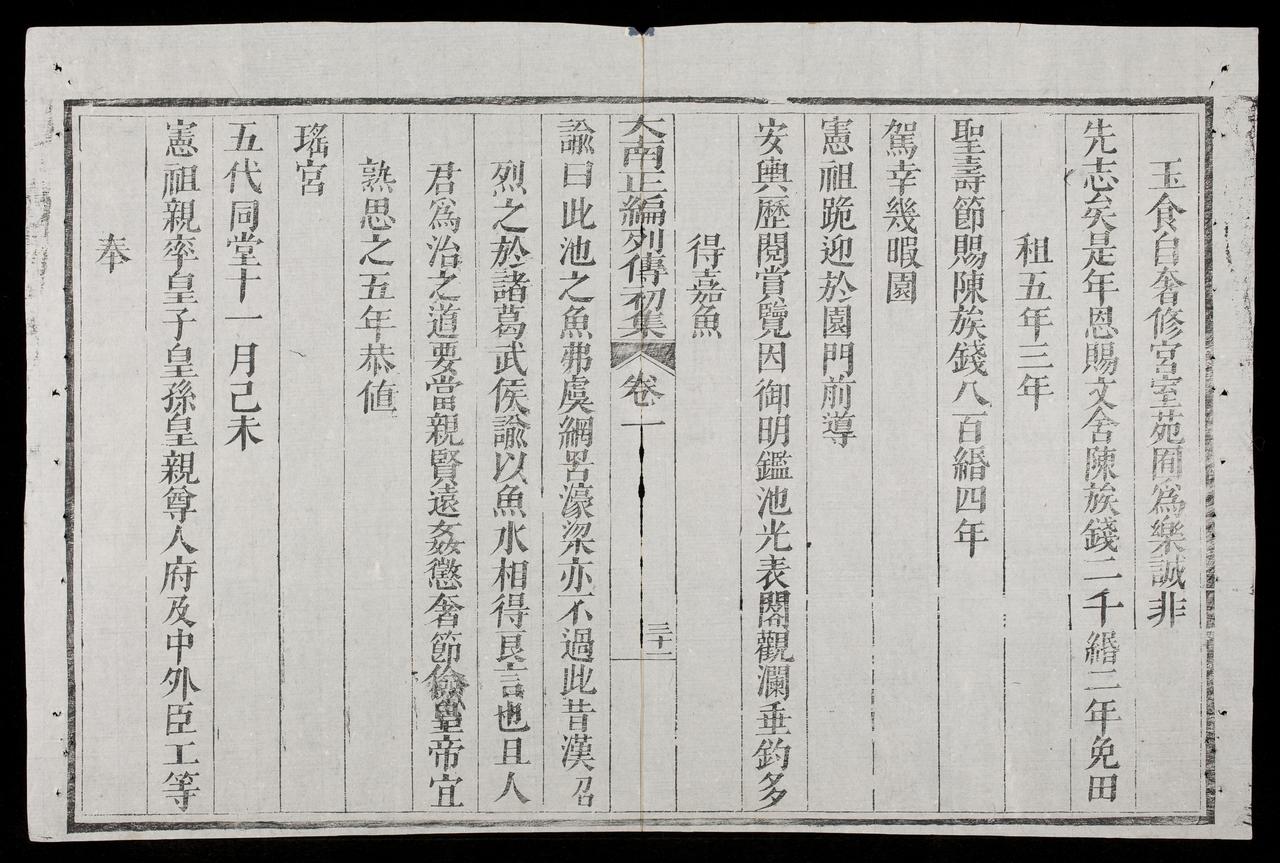 玉食自奢修宮室苑囿爲樂誠非
先志矣是年恩賜文舍陳族錢二千緡二年免田
租五年三年
聖壽節賜陳族錢八百緡四年
駕幸幾暇園
憲祖跪迎於園門前導
安輿歷閱賞覽因御明鑑池光表閣觀瀾垂釣多
得嘉魚
大南正編列傳初集 卷一 三十一
諭曰此池之魚弗虞網罟濠梁亦不過此昔漢召
烈之於諸葛武侯諭以魚水相得良言也且人
君爲治之道要當親賢遠姦懲奢節儉皇帝宜
熟思之五年恭値
瑤宮
五代同堂十一月己未
憲祖親率皇子皇孫皇親尊人府及中外臣工等
奉